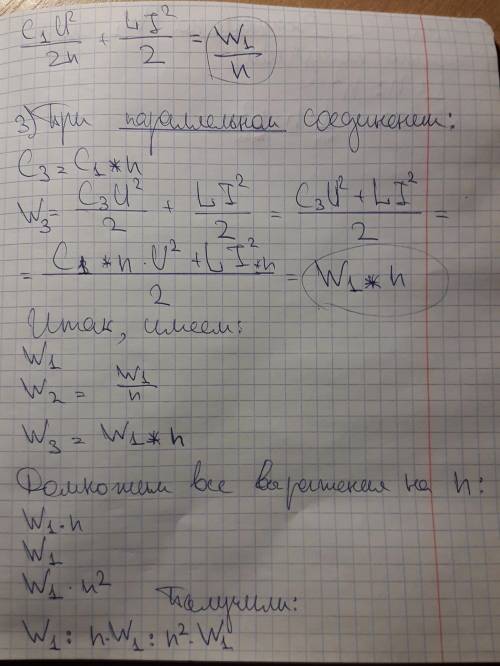 C₁U²/2n + LI²/2 = W₁/n
3) При параллельном соединении:
C₃ = C₁*n
W₃ = C₃U²/2 + LI²/2 = (C₃U² + LI²)/2 =
= (C₁*n·U² + LI²*n)/2 = W₁*n
Итак, имеем:
W₁
W₂ = W₁/n
W₃ = W₁*n
Домножим все выражения на n:
W₁·n
W₁
W₁·n²
Получили:
W₁ : n·W₁ : n²·W₁